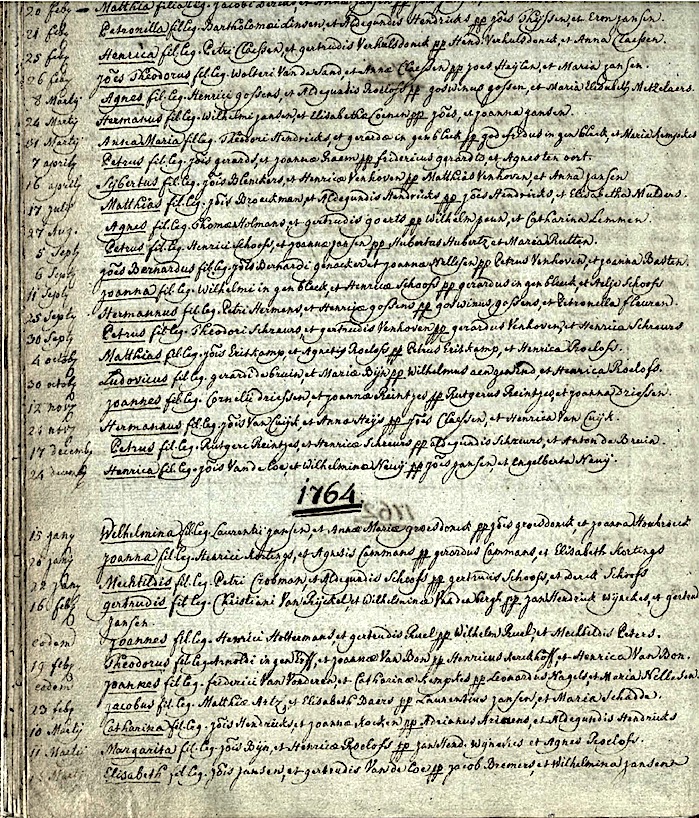 20 feby Mathia fil. leg. Jacobi
21 feby Petronilla fil: leg. Bartholomæi Linsen, et Aldegundis Hendricks pp jões Thijssen, et Erm jansen.
25 feby Henrica fil. leg. Petri Claessen, et gertrudis Verhulsdonck pp Hend. Verhulsdonck, et Anna Claessen.
26 feby jões Theodorus fil. leg. Wolteri Van der Sand, et Annæ Claessen pp joes Heijlen, et Maria jansen.
8 Martij Agnes fil. leg. Henrici gossens, et Aldegundis Roeloffs pp goswinus gossen, et Maria Elisabeth Metzelaers.
24 Martij Hermanus fil. leg. Wilhelmi jansen, et Elisabethæ Coenen pp jões, et joanna jansen.
31 Martij Anna Maria fil. leg. Theodori Hendricks, et gerardæ in gen bleck pp godefridus in gen bleck, et Maria Kempkes
7 aprilij Petrus fil. leg. jõis gerards, et joannæ Raem pp fridericus gerardts et Agnes ten oort.
16 aprilij Sijbertus fil. leg. jõis Blenckers, et Henricæ Venhoven pp Matthias Venhoven, et Anna jansen
17 julij Matthias fil. leg. jõis Broeckman, et Aldegundis Hendricks pp jões Hendricks, et Elisabetha Mulders.
27 Aug. Agnes fil. leg. Thomæ Holmans, et gertrudis goerts pp Wilhelm, et Catharina Lemmen.
5 Septj Petrus fil. leg. Henrici Schoofs, et joannæ jansen pp Hubertus Hubertz, et Maria Rutten.
6 Septj jões Bernardus fil. leg. jõis Bernardi genacker et joannæ Nellissen pp Petrus Venhoven, et joanna Basten.
11 Septj joanna fil. leg. Wilhelmi in gen bleck, et Henricæ Schoofs pp gerardus in gen bleck, et Schoofs
25 Septj Hermannus fil. leg. Petri Hermens, et Henricæ gossens pp goswinus gossens, et Petronella fleuren.
30 Septj Petrus fil. leg. Theodori Schreurs, et gertrudis Venhoven pp gerardus Venhoven, et Henrica Schreurs
4 octobr Matthias fil. leg. jõis Eritkamp, et Agnetis Roeloffs pp Petrus Eritkamp, et Henrica Roeloffs.
30 octobr Ludovicus fil. leg. gerardi de bruin, et Mariæ Bijn pp Wilhelmus aengenend et Henrica Roeloffs.
12 novr joannes fil. leg. Cornelii driessen et joannæ Reintjes pp Rutgerus Reintjes et joanna Driessen.
24 novr Hermannus fil. leg. jõis Van Cuijk et Annæ Heijs pp jões Claessen, et Henrica Van Cuijk.
17 decemb Petrus fil. leg. Rutgeri Reintjes et Henricæ Schreurs pp aldegundis Schreurs, et Anton de Bruin.
24 decemb Henrica fil. leg. jõis Van de Loe, et Wilhelmina Neuij pp jões jansen, et Engelberta Neuij.
1764
15 janij Wilhelmina fil. leg. Laurentii jansen, et Annæ Mariæ groesdonck pp jões groesdonck et joanna Houbroeck
20 janij joanna fil. leg. Henrici Kortings, et Agnetis Cammans pp gerardus Cammans, et Elisabeth Kortings
22 janij Mechtildis fil. leg. Petri Crooman, et Aldegundis Schoofs pp gertrudis Schoofs, et Derck Schoofs
16 febj gertrudis fil. leg. Christiani Van Rijckel, et Wilhelmina Van den bergh pp jan Hendrick Wijnekes, et gertrud
jansen.
eodem joannes fil. leg. Henrici Holtermans, et gertrudis Ruel pp Wilhelm Ruel, et Mechteldis Peters.
19 febj Theodorus fil. leg. Arnoldi in gen hoff, et joannæ Van Bon pp Henricus Kerckhoff, et Henrica Van Bon.
eodem joannes fil. leg. friderici Van Vonderen, et Catharinæ Kempkes pp Leonardus Nagels, et Maria Nellessen.
23 febj jacobus fil. leg. Matthiæ Artz, et Elisabeth Daers pp Laurentius jansen, et Maria Schedde.
10 Martij Catharina fil. leg. jõis Hendricks, et joannæ Kocken pp Adrianus Ariaens, et Aldegundis Hendricks
11 Martij Margarita fil. leg. jõis Bijn, et Henricæ Roeloffs pp jan Hend. Wijnekes et Agnes Roeloffs.
Martij Elisabeth fil. leg. jõis jansen, et gertrudis Van de Loe pp jacob Bremers, et Wilhelmina jansen